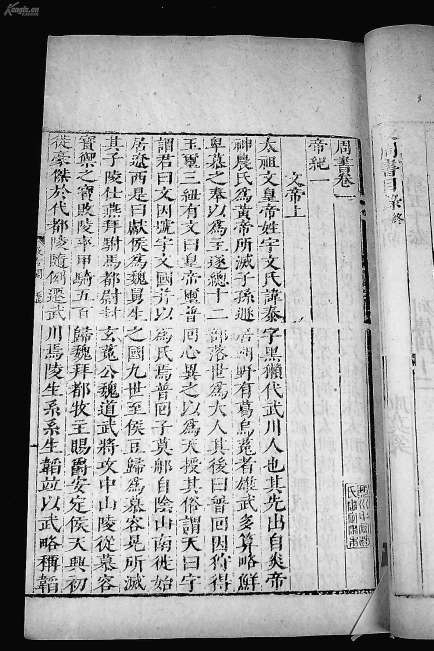 周書目錄終
周書卷一
帝紀一
文帝上
太祖文皇帝姓宇文氏諱泰字黑獺代武川人也其先出自炎帝
神農氏爲黃帝所滅子孫遯居朔野有葛烏菟者雄武多算略鮮
卑慕之奉以爲主遂總十二部落世爲大人其後曰普回因狩得
玉璽三紐有文曰皇帝璽普回心異之以爲天授其俗謂天曰宇
謂君曰文因號宇文國并以爲氏焉普回子莫那自陰山南徙始
居遼西是曰獻侯爲魏舅生之國九世至侯豆歸爲慕容晃所滅
其子陵仕燕拜駙馬都尉封玄菟公魏道武將攻中山陵從慕容
寶禦之寶敗陵率甲騎五百歸魏拜都牧主賜爵安定侯天興初
徙豪傑於代都陵隨例遷武川焉陵生系系生韜竝以武略稱韜